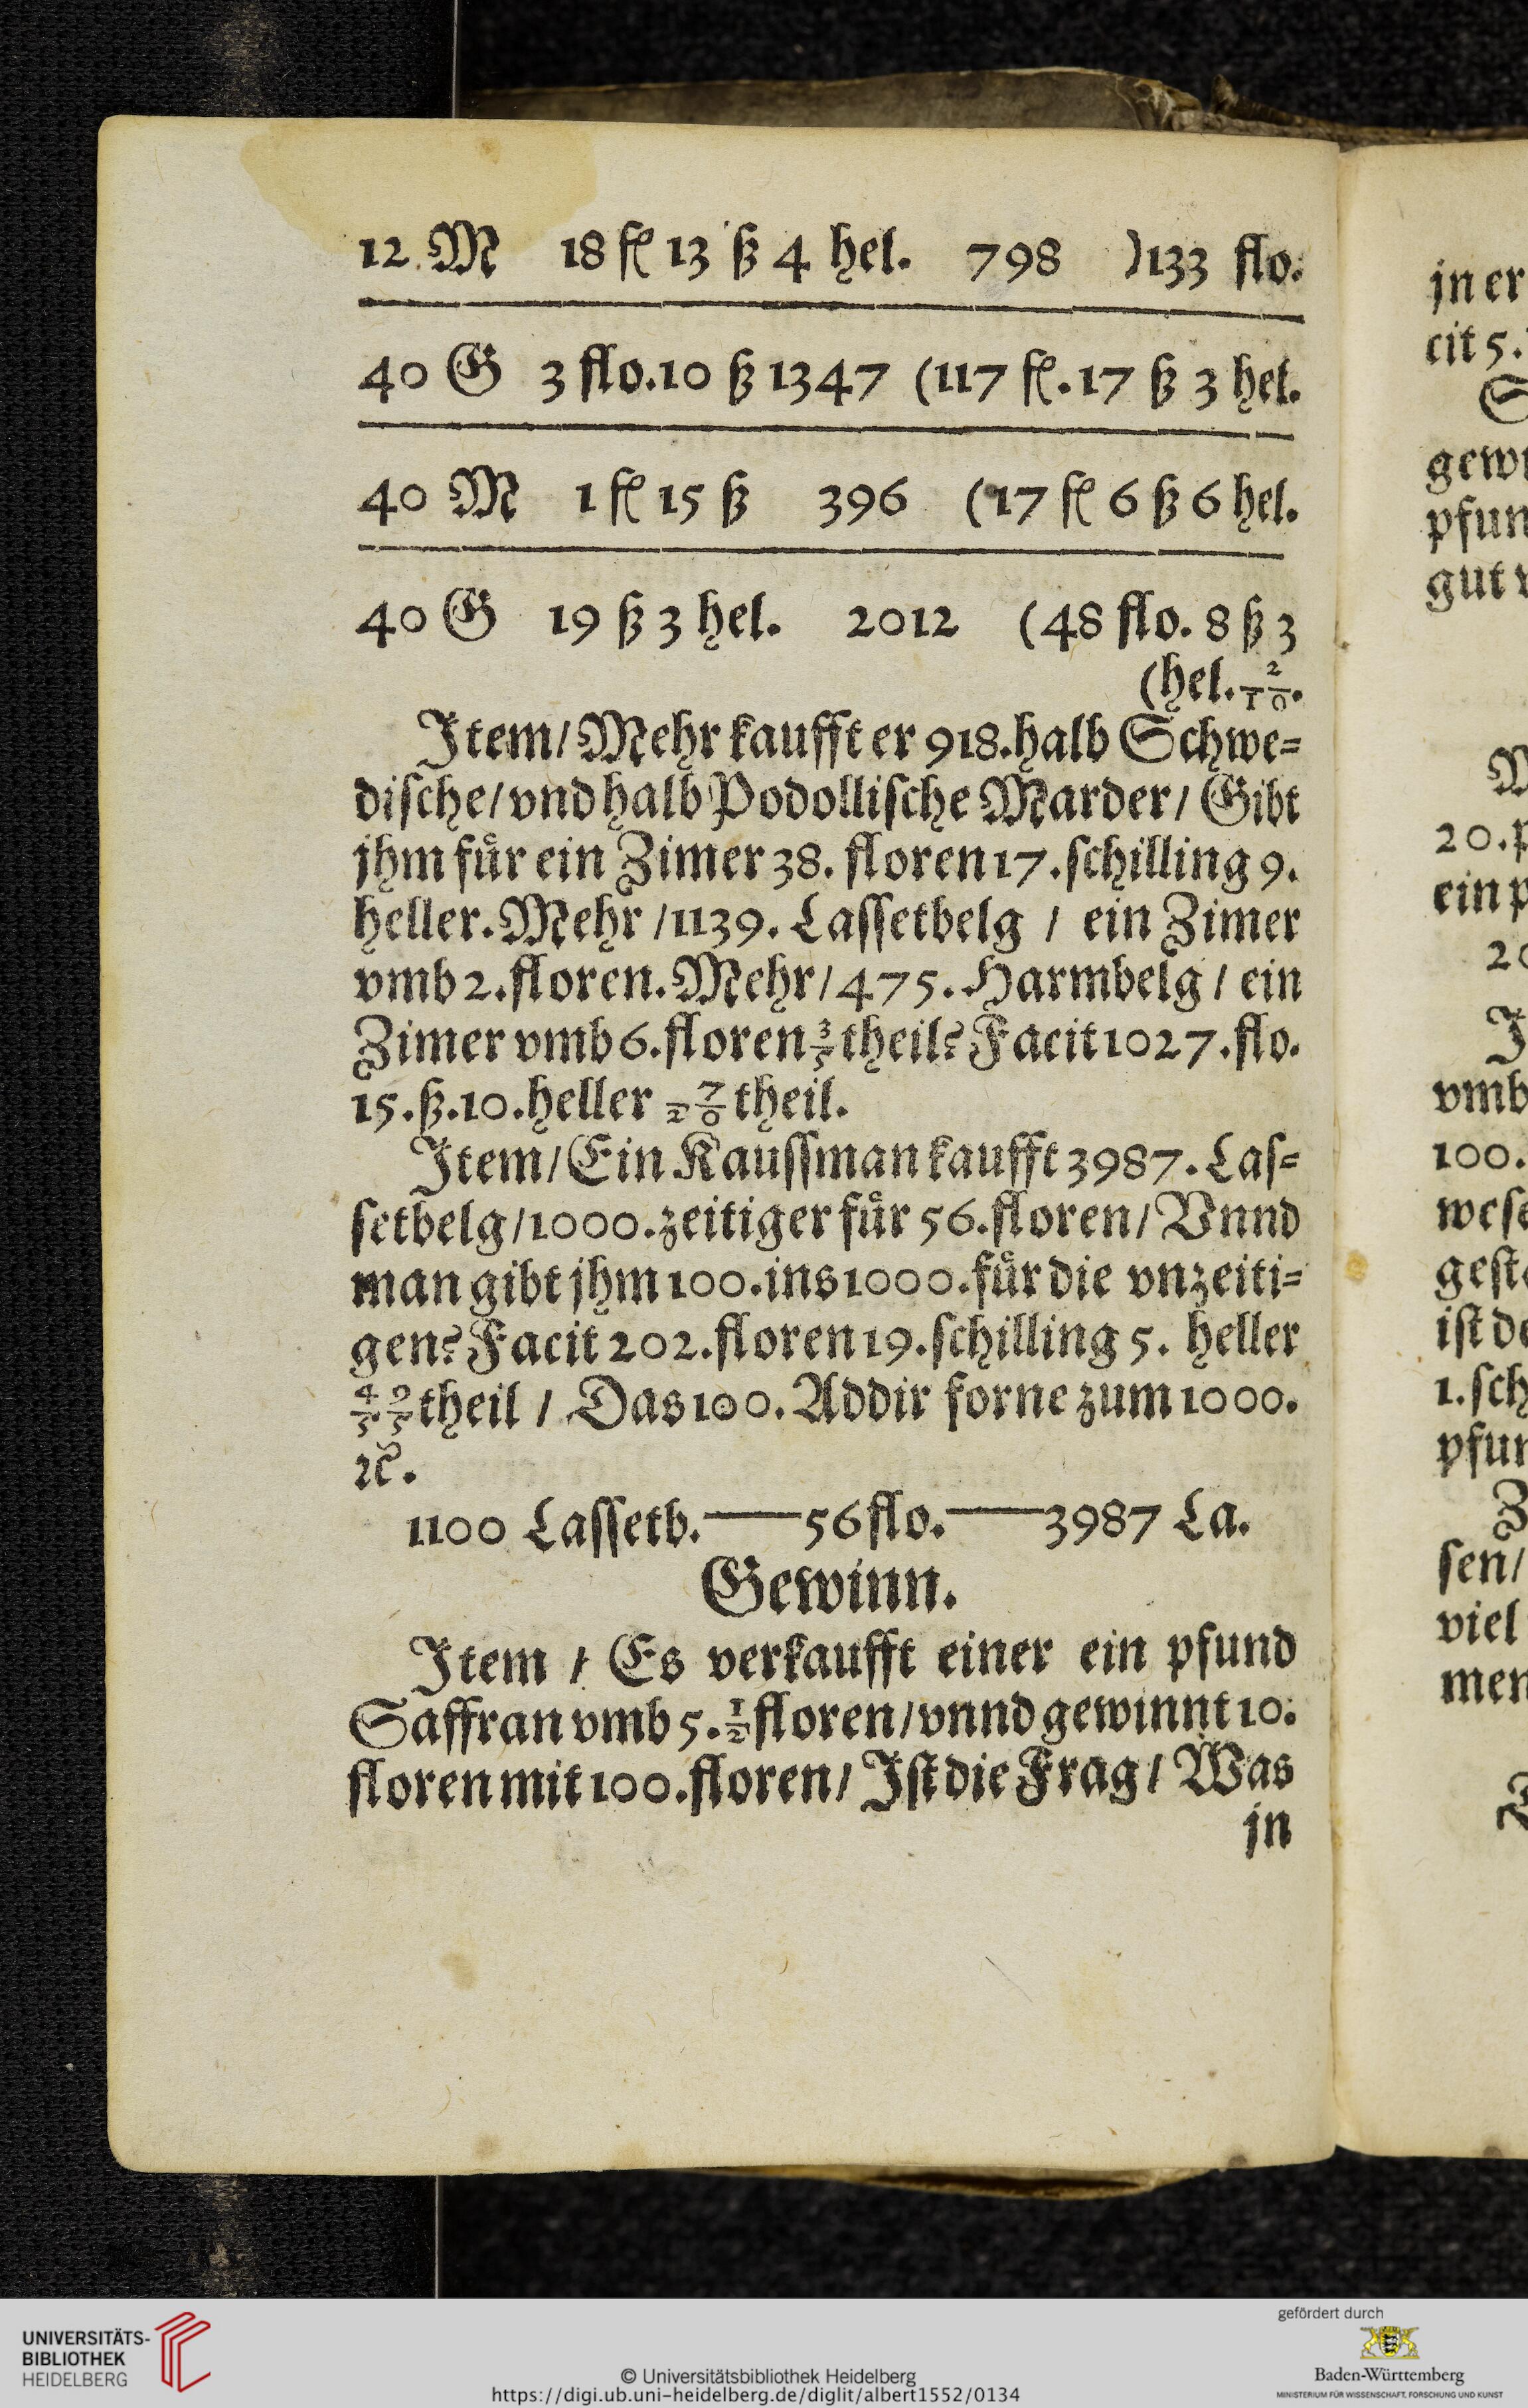 12 M 18 fl 13 ß 4 hel. 798 )133 flo.
40 G 3 flo. 10 ß 1347 (117 fl. 17 ß 3 hel.
40 M 1 fl 15 ß 396 (17 fl 6 ß 6 hel.
40 G 19 ß 3 hel. 2012 (48 flo. 8 ß 3
(hel. 2/10.
Item/ Mehr kaufft er 918. halb Schwe=
dische/ vnd halb Podollische Marder/ Gibt
jhm für ein Zimer 38. floren 17. schilling 9.
heller. Mehr / 1139. Lassetbelg / ein Zimer
vmb 2. floren. Mehr / 475. Harmbelg / ein
Zimer vmb 6. floren 3/5 theil? Facit 1027. flo.
15. ß. 10. heller 7/20 theil.
Item/ Ein Kaussman kaufft 3987. Las=
setbelg / 1000. zeitiger für 56. floren / Vnnd
man gibt jhm 100. ins 1000. für die vnzeiti=
gen? Facit 202. floren 19. schilling 5. heller
49/55 theil / Das 100. Addir forne zum 1000.
ꝛc.
1100 Lassetb. — 56 flo. — 3987 La.
Gewinn.
Item / Es verkaufft einer ein pfund
Saffran vmb 5. 1/2 floren / vnnd gewinnt 10.
floren mit 100. floren / Ist die Frag / Was
jn
jn er
cit 5.
gew
pfun
gut v
20. p
ein p
20
J
vmb
100.
wese
geste
ist de
1. sch
pfun
Z
sen/
viel
men
UNIVERSITÄTS-
BIBLIOTHEK
HEIDELBERG
© Universitätsbibliothek Heidelberg
https://digi.ub.uni-heidelberg.de/diglit/albert1552/0134
gefördert durch
Baden-Württemberg
MINISTERIUM FÜR WISSENSCHAFT, FORSCHUNG UND KUNST